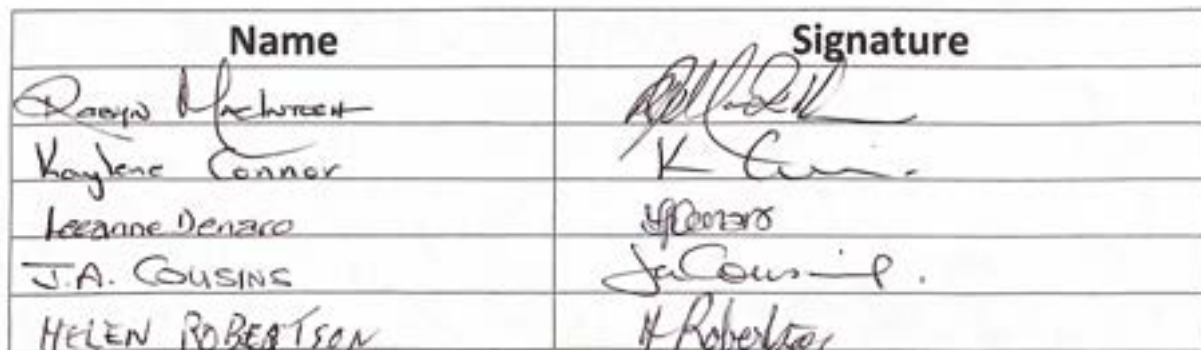 Name Signature
Robyn MacIntosh
Kaylene Connor K Connor.
Leeanne Denaro LJDenaro
J.A. COUSINS JACousins.
HELEN ROBERTSON H Robertson